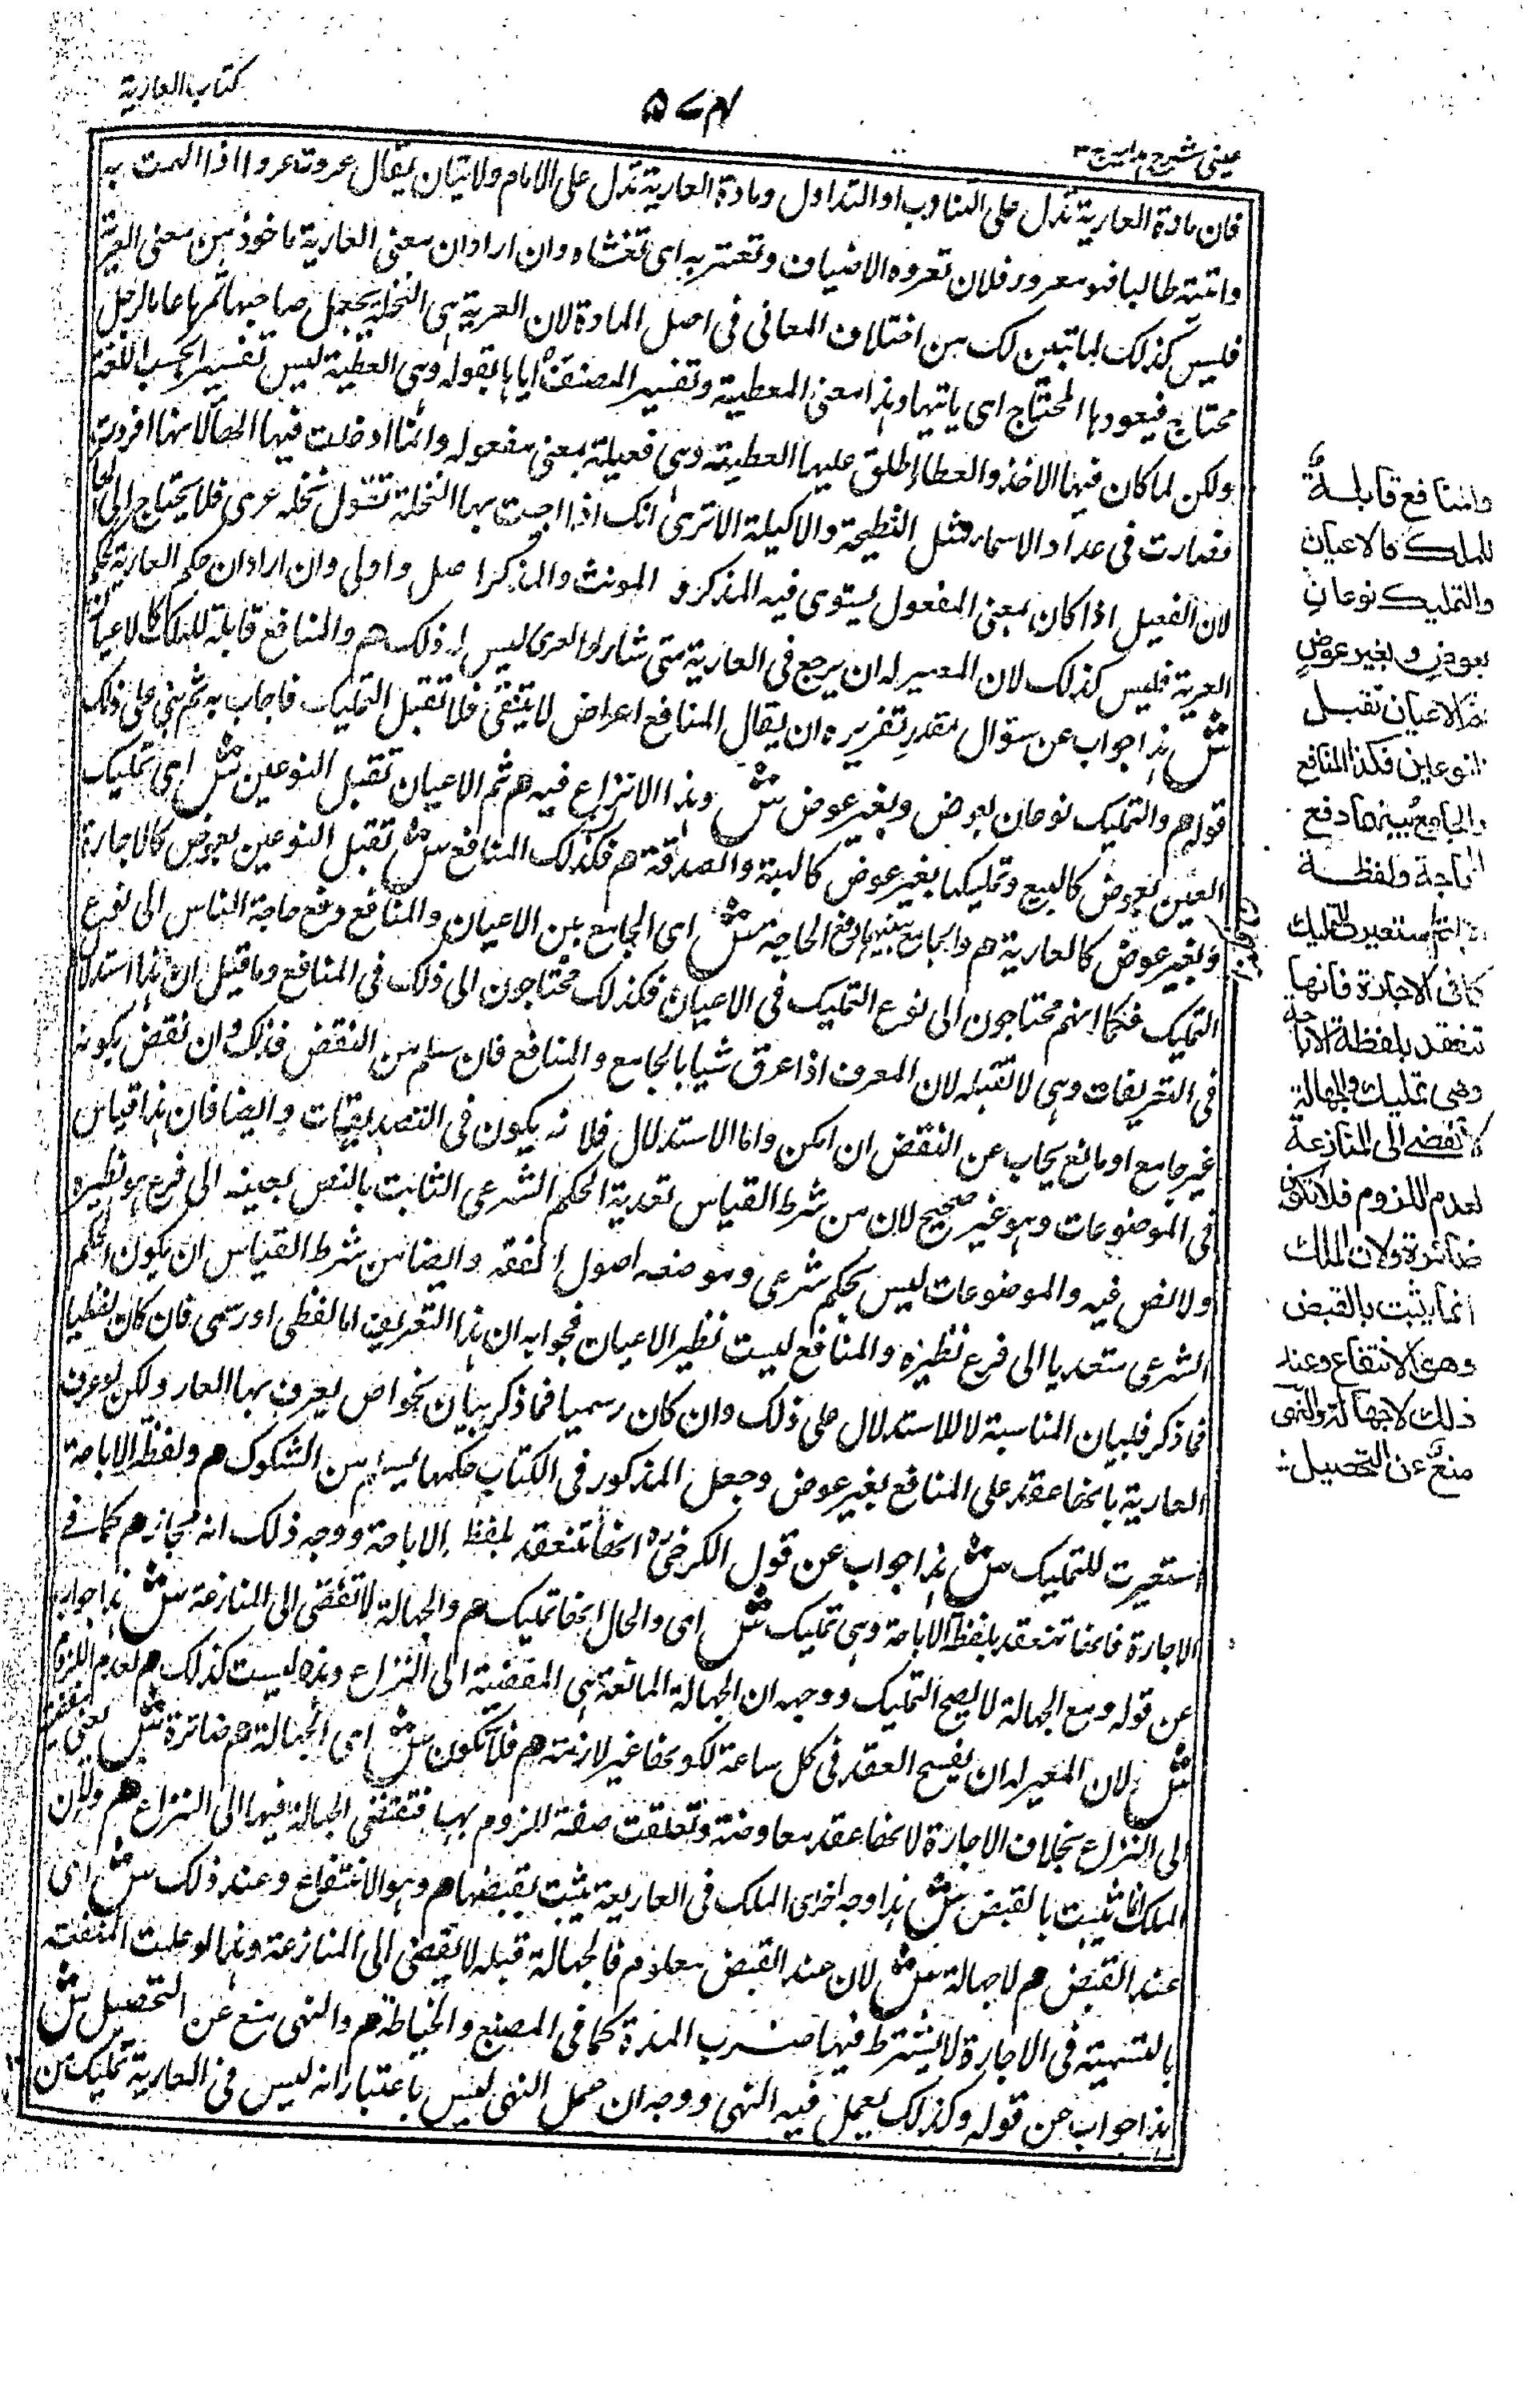 كتاب العارية
٥٧٤
عينى شرح هدايه ج ٣
فان مادة العارية تدل على التناوب او التداول ومادة العارية تدل على الالمام والاتيان يقال عروت عروا اذا الممت به
واتيته طالبا فهو معرور وفلان تعروه الاضياف وتعتريه اى تغشاه وان اراد ان معنى العارية ماخوذ من معنى العرية
فليس كذلك لما تبين لك من اختلاف المعانى فى اصل المادة لان العرية هى النخلة يجعل صاحبها ثمرها عاما لرجل
محتاج فيعروها المحتاج اى ياتيها وهذا معنى العطية وتفسير المصنف اياها بقوله وهى العطية ليس تفسيرا بحسب اللغة
ولكن لما كان فيها الاخذ والعطاء اطلق عليها العطية وهى فعيلة بمعنى مفعوله وانما ادخلت فيها الهاء لانها افردت
فصارت فى عداد الاسماء مثل النطيحة والاكيلة الا ترى انك اذا جئت بها النخلة تقول نخلة عرى فلا يحتاج الى
لان الفعيل اذا كان بمعنى المفعول يستوى فيه المذكر و المونث والمذكر اصل واولى وان اراد ان حكم العارية
العرية فليس كذلك لان المعير له ان يرجع فى العارية متى شاء والعرى ليس له ذلك هم والمنافع قابلة للملك كالاعيان
ش هذا جواب عن سؤال مقدر تقريره ان يقال المنافع اعراض لا يتقى فلا تقبل التمليك فاجاب به ثم بنى على ذلك
قوله هم والتمليك نوعان بعوض وبغير عوض ش وهذا لا نزاع فيه هم ثم الاعيان تقبل النوعين ش اى تمليك
العين بعوض كالبيع وتمليكها بغير عوض كالهبة والصدقة هم فكذلك المنافع ش تقبل النوعين بعوض كالاجارة
وبغير عوض كالعارية هم والجامع بينهما دفع الحاجة ش اى الجامع بين الاعيان والمنافع دفع حاجة الناس الى نوع
التمليك فكما انهم محتاجون الى نوع التمليك فى الاعيان فكذلك محتاجون الى ذلك فى المنافع وما قيل ان هذا استدلال
فى التعريفات وهى لا تقبله لان المعرف اذا عرف شيا بالجامع و المنافع فان سلم من النقض فذلك وان نقض بكونه
غير جامع او مانع يجاب عن النقض ان امكن واما الاستدلال فلا نه يكون فى التصديقات وايضا فان هذا قياس
فى الموضوعات وهو غير صحيح لان من شرط القياس تعدية الحكم الشرعى الثابت بالنص بعينه الى فرع هو نظيره
ولا نص فيه والموضوعات ليس بحكم شرعى وموضعه اصول الفقه وايضا من شرط القياس ان يكون الحكم
الشرعى متعديا الى فرع نظيره والمنافع ليست نظير الاعيان فجوابه ان هذا التعريف اما لفظى او رسمى فان كان لفظيا
فما ذكر فلبيان المناسبة لا للاستدلال على ذلك وان كان رسميا فما ذكر بيان بخواص يعرف بها العار ولكن لو عرف
العارية بانها عقد على المنافع بغير عوض وجعل المذكور فى الكتاب حكمها ليسلم من الشكوك هم ولفظة الاباحة
استعيرت للتمليك ش هذا جواب عن قول الكرخى انها تنعقد بلفظ الاباحة ووجه ذلك انه مجاز هم كما فى
الاجارة فانها تنعقد بلفظ الاباحة وهى تمليك ش اى والحال انها تمليك هم والجهالة لا تفضى الى المنازعة ش هذا جواب
عن قوله ومع الجهالة لا يصح التمليك ووجهه ان الجهالة المانعة هى المفضية الى النزاع وهذه ليست كذلك هم لعدم اللزوم
ش لان المعير له ان يفسخ العقد فى كل ساعة لكونها غير لازمة هم فلا تكون ش اى الجهالة هم ضائرة ش يعنى
الى النزاع بخلاف الاجارة لانها عقد معاوضة وتعلقت صفة اللزوم بها فتفضى الجهالة فيها الى النزاع هم ولان
الملك انما يثبت بالقبض ش هذا وجه اخراى الملك فى العارية يثبت بقبضها هم وهو الانتفاع وعند ذلك ش اى
عند القبض هم لا جهالة ش لان عند القبض معلوم فالجهالة قبله لا تفضى الى المنازعة ولهذا لو علمت المنفعة
بالتسمية فى الاجارة لا يشترط فيها ضرب المدة كما فى الصبغ والخياطة هم والنهى منع عن التحصيل ش
هذا جواب عن قوله وكذلك يعمل فيه النهى ووجه ان عمل النهى ليس باعتبار انه ليس فى العارية تمليك من
والمنافع قابلة
للملك كالاعيان
والتمليك نوعان
بعوض وبغير عوض
ثم الاعيان تقبل
النوعين فكذا المنافع
والجامع بينهما دفع
الحاجة ولفظة
الاباحة استعيرت للتمليك
كما فى الاجارة فانها
تنعقد بلفظة الاباحة
وهى تمليك والجهالة
لا تفضى الى المنازعة
لعدم اللزوم فلا تكون
ضائرة ولان الملك
انما يثبت بالقبض
وهو الانتفاع وعند
ذلك لا جهالة والنهى
منع عن التحصيل